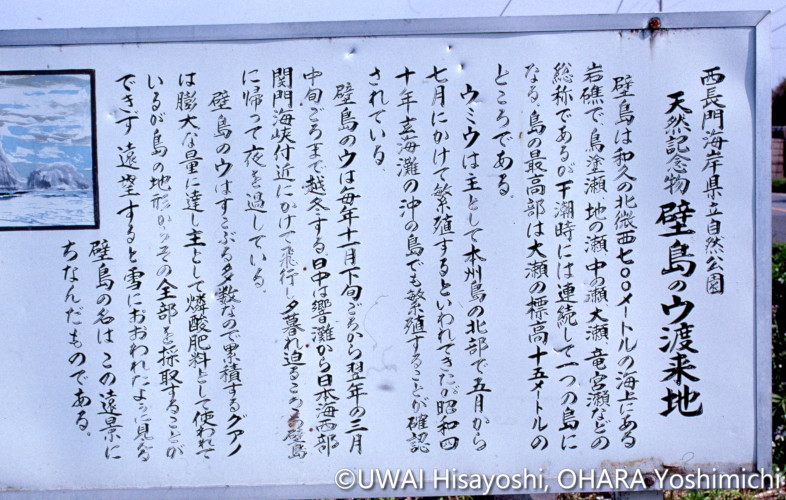 西長門海岸県立自然公園
天然記念物 壁島のウ渡来地
壁島は和久の北微西七〇〇メートルの海上にある
岩礁で、鳥塗瀬、地の瀬、中の瀬、大瀬、竜宮瀬などの
総称であるが干潮時には連続して一つの島に
なる、島の最高部は大瀬の標高十五メートルの
ところである。
ウミウは主として本州島の北部で五月から
七月にかけて繁殖するといわれてきたが昭和四
十年玄海灘の沖の島でも繁殖することが確認
されている。
壁島のウは毎年十一月下旬ごろから翌年の三月
中旬ごろまで越冬する、日中は響灘から日本海西部
関門海峡付近にかけて飛行し夕暮れ迫るころ壁島
に帰って夜を過している。
壁島のウはすこぶる多数なので累積するグアノ
は膨大な量に達し主として燐酸肥料として使われて
いるが島の地形からその全部を採取することが
できず遠望すると雪におおわれたように見える
壁島の名はこの遠景に
ちなんだものである。
©UWAI Hisayoshi, OHARA Yoshimichi